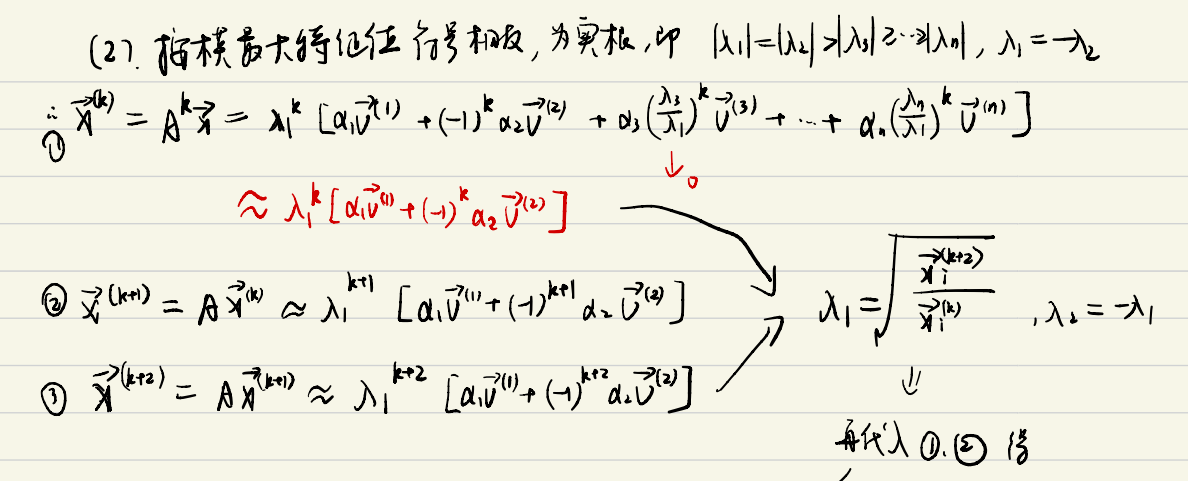 (2). 按模最大特征值符号相反, 为实根, 即 |λ₁|=|λ₂|>|λ₃|≥⋯≥|λₙ|, λ₁=-λ₂
∴ ① x⃗^(k) = A^k x⃗ = λ₁^k [α₁v⃗^(1) + (-1)^k α₂v⃗^(2) + α₃(λ₃/λ₁)^k v⃗^(3) + ⋯ + αₙ(λₙ/λ₁)^k v⃗^(n)]
↓0
≈ λ₁^k [α₁v⃗^(1) + (-1)^k α₂v⃗^(2)]
② x⃗^(k+1) = A x⃗^(k) ≈ λ₁^(k+1) [α₁v⃗^(1) + (-1)^(k+1) α₂v⃗^(2)]
λ₁ = √(x⃗ᵢ^(k+2)/x⃗ᵢ^(k)), λ₂ = -λ₁
③ x⃗^(k+2) = A x⃗^(k+1) ≈ λ₁^(k+2) [α₁v⃗^(1) + (-1)^(k+2) α₂v⃗^(2)]
⇓
再代入 ①.② 得